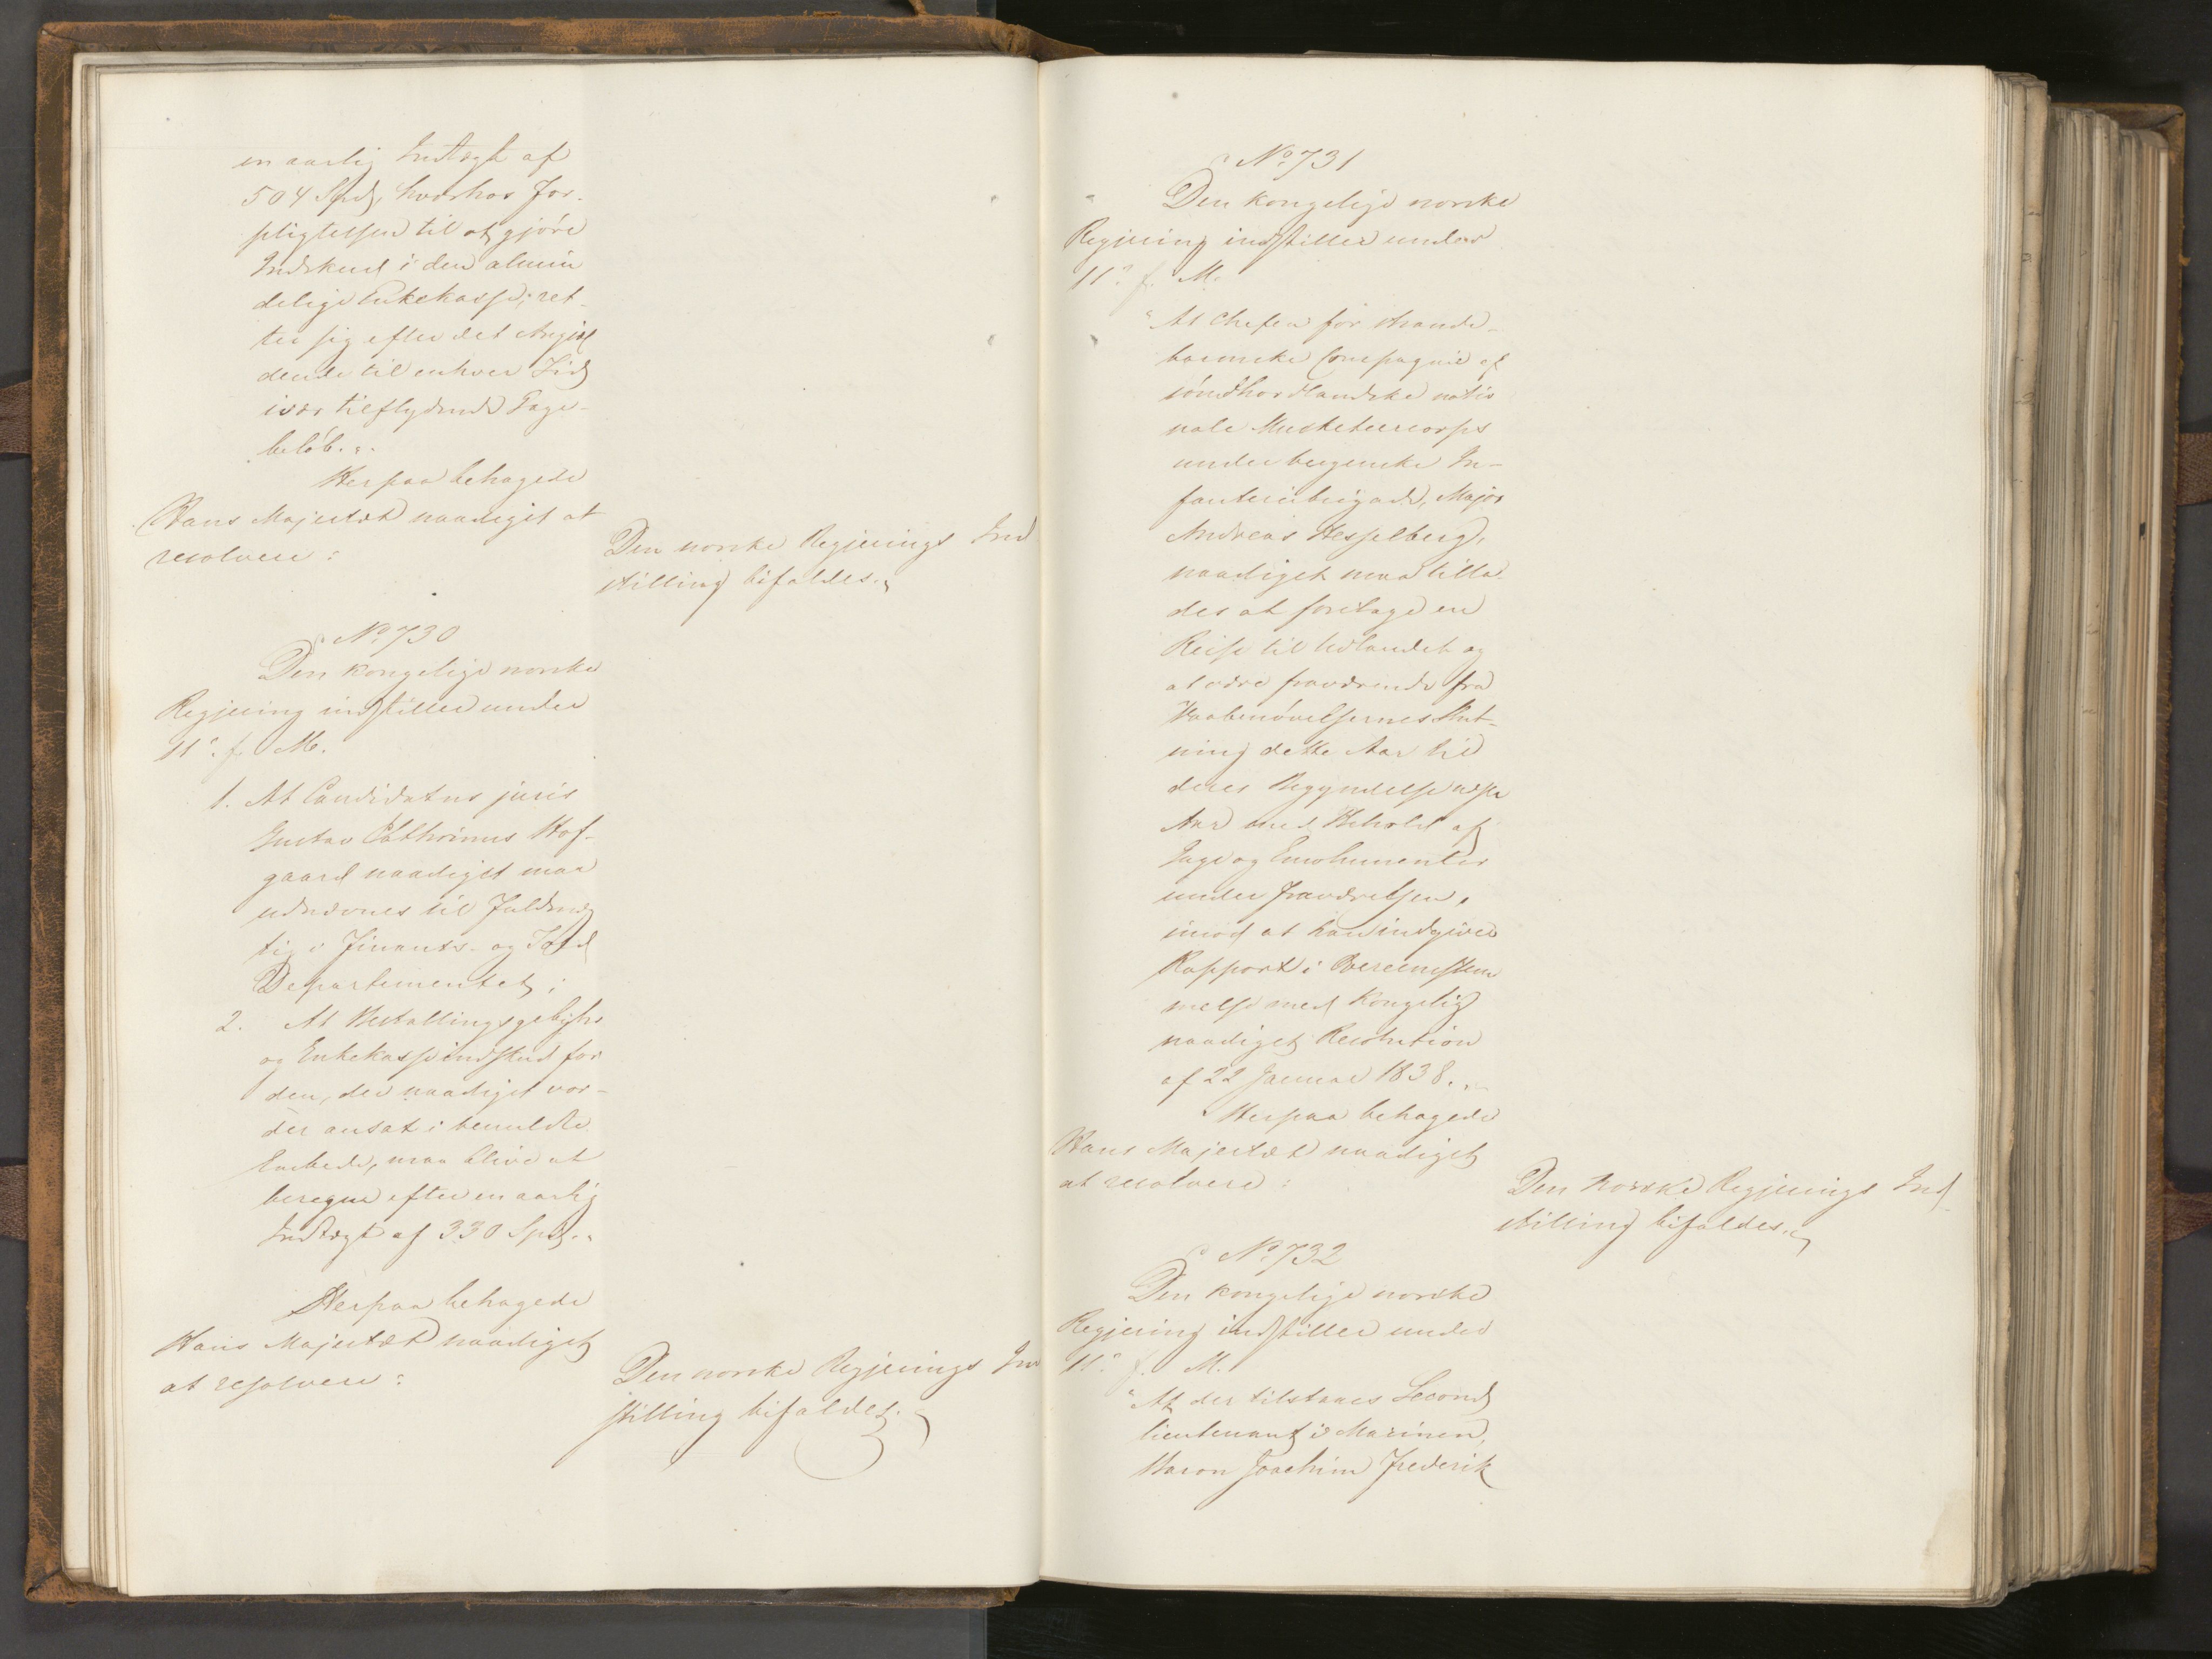 en aarlig Indtægt af
504 Spd, hvorhos For-
pligtelsen til at gjöre
Indskud i den almin
delige Enkekasse, ret-
ter sig efter det Angjæl
dende til enhver Tid
især tilflydende Gage-
belöb.".
Herpaa behagede
Hans Majestæt naadigst at
resolvere:
Den norske Regjerings Ind
stilling bifaldes.
No. 730
Den kongelige norske
Regjering indstiller under
11e f. M.
1. At Candidatus juris
Gustav Cathrinus Hof-
gaard naadigst maa
udnævnes til Fuldmæg
tig i Finants- og Told
Departementet;
2. At Bestallingsgebyhr
og Enkekasseindskud for
den, der naadigst vor-
der ansat i bemeldte
Embede, maa blive at
beregne efter en aarlig
Indtægt af 330 Spd."
Herpaa behagede
Hans Majestæt naadigst
at resolvere:
Den norske Regjerings Ind
stilling bifaldes.
No. 731
Den kongelige norske
Regjering indstiller under
11e f. M.
"At Chefen for Strande-
barmske Compagnie af
söndhordlandske natio
nale Musketeercorps
under bergenske In-
fanteribrigade, Major
Andreas Hesselberg,
naadigst maa tilla-
des at foretage en
Reise til Udlandet og
at være fraværende fra
Vaabenövelsernes Slut-
ning dette Aar til
deres Begyndelse næste
Aar med Behold af
Gage og Emolumenter
under Fraværelsen,
imod at han indgiver
Rapport i Overeenstem
melse med Kongelig
naadigst Resolution
af 22 Januar 1838.".
Herpaa behagede
Hans Majestæt naadigst
at resolvere:
Den norske Regjerings Ind
stilling bifaldes.
No. 732
Den kongelige norske
Regjering indstiller under
11e f. M.
"At der tilstaaes Second
lieutenant i Marinen,
Baron Joachim Frederik